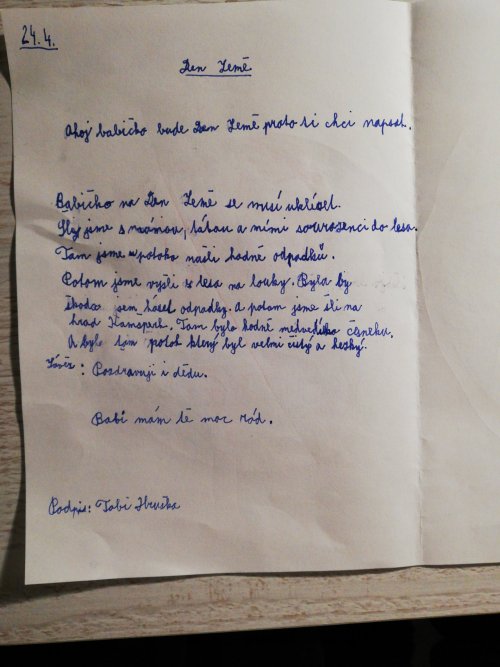 24.4.
Den Země
Ahoj babičko bude Den Země proto ti chci napsat.
Babičko na Den Země se musí uklízet.
Šly jsme s mámou, tátou a mími sourozenci do lesa.
Tam jsme u potoka našli hodně odpadků.
Potom jsme vyšli s lesa na louky. Byla by
škoda sem házet odpadky. A potom jsme šli na
hrad Kamperk. Tam bylo hodně medvědího česneku.
A bylo tam potok který byl velmi čistý a hezký.
Závěr: Pozdravuji i dědu.
Babi mám tě moc rád.
Podpis: Tobi Hruška